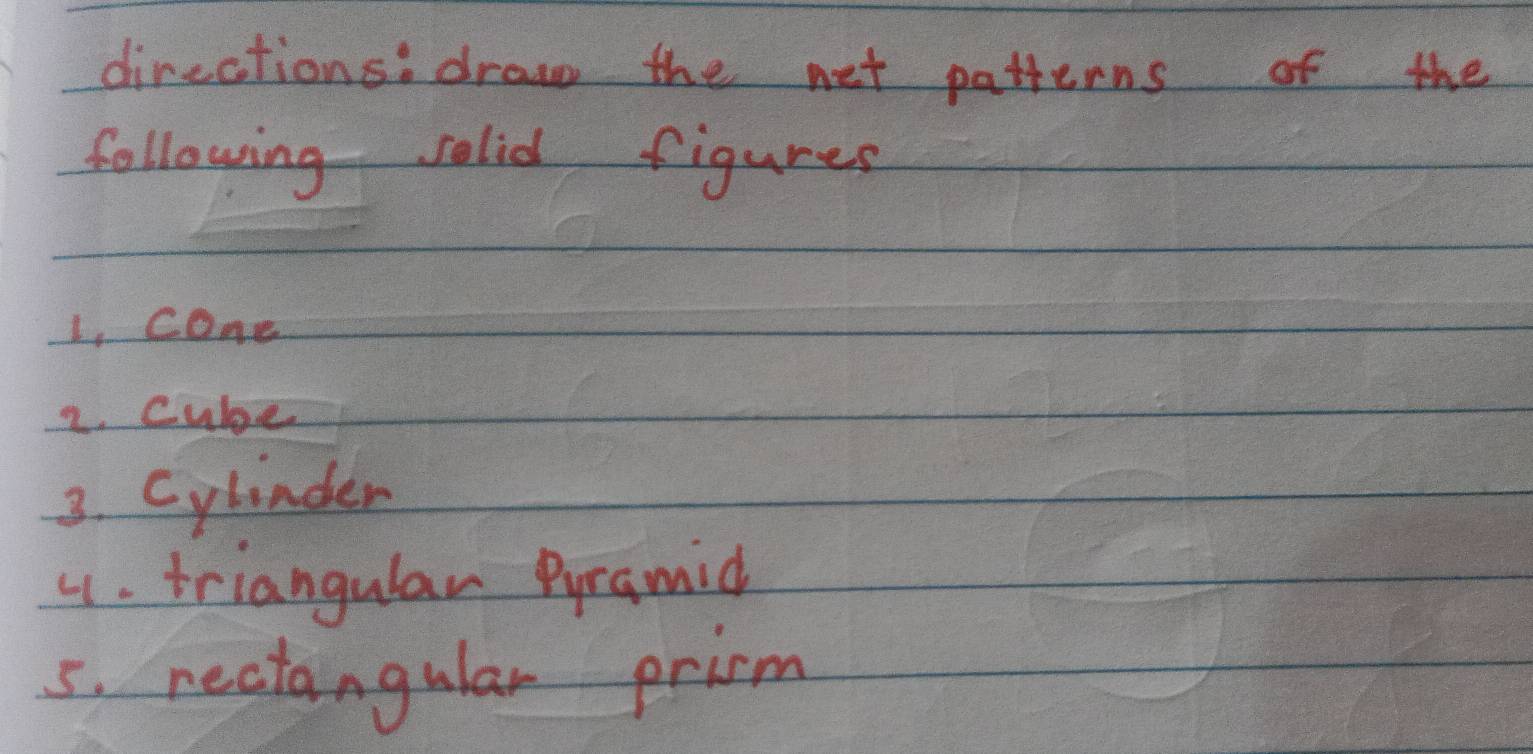 directions: draw the net patterns of the
following solid figures
1. cone
2. cube
3. Cylinder
4. triangular Pyramid
5. rectangular prism